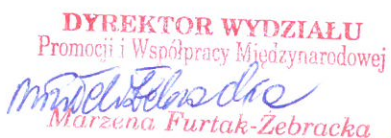 DYREKTOR WYDZIAŁU
Promocji i Współpracy Międzynarodowej
Marzena Furtak-Żebracka